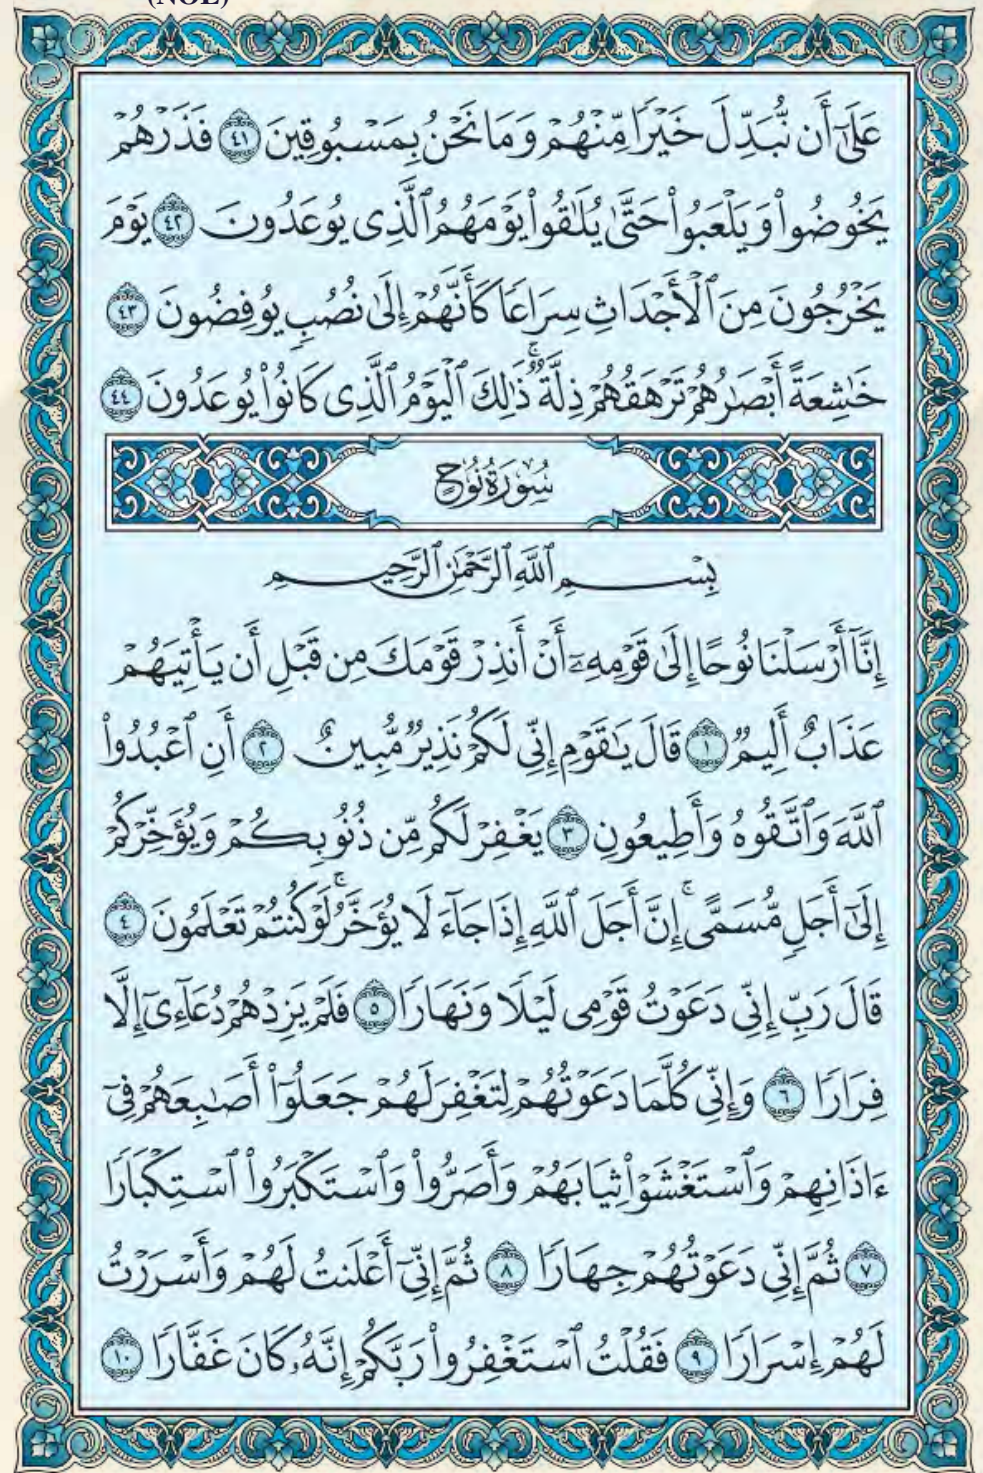 (NOE)
عَلَىٰٓ أَن نُّبَدِّلَ خَيْرًا مِّنْهُمْ وَمَا نَحْنُ بِمَسْبُوقِينَ ٤١ فَذَرْهُمْ
يَخُوضُوا۟ وَيَلْعَبُوا۟ حَتَّىٰ يُلَـٰقُوا۟ يَوْمَهُمُ ٱلَّذِى يُوعَدُونَ ٤٢ يَوْمَ
يَخْرُجُونَ مِنَ ٱلْأَجْدَاثِ سِرَاعًا كَأَنَّهُمْ إِلَىٰ نُصُبٍ يُوفِضُونَ ٤٣
خَـٰشِعَةً أَبْصَـٰرُهُمْ تَرْهَقُهُمْ ذِلَّةٌ ۚ ذَٰلِكَ ٱلْيَوْمُ ٱلَّذِى كَانُوا۟ يُوعَدُونَ ٤٤
سُورَةُ نُوحٍ
بِسْمِ ٱللَّهِ ٱلرَّحْمَـٰنِ ٱلرَّحِيمِ
إِنَّآ أَرْسَلْنَا نُوحًا إِلَىٰ قَوْمِهِۦٓ أَنْ أَنذِرْ قَوْمَكَ مِن قَبْلِ أَن يَأْتِيَهُمْ
عَذَابٌ أَلِيمٌ ١ قَالَ يَـٰقَوْمِ إِنِّى لَكُمْ نَذِيرٌ مُّبِينٌ ٢ أَنِ ٱعْبُدُوا۟
ٱللَّهَ وَٱتَّقُوهُ وَأَطِيعُونِ ٣ يَغْفِرْ لَكُم مِّن ذُنُوبِكُمْ وَيُؤَخِّرْكُمْ
إِلَىٰٓ أَجَلٍ مُّسَمًّى ۚ إِنَّ أَجَلَ ٱللَّهِ إِذَا جَآءَ لَا يُؤَخَّرُ ۖ لَوْ كُنتُمْ تَعْلَمُونَ ٤
قَالَ رَبِّ إِنِّى دَعَوْتُ قَوْمِى لَيْلًا وَنَهَارًا ٥ فَلَمْ يَزِدْهُمْ دُعَآءِىٓ إِلَّا
فِرَارًا ٦ وَإِنِّى كُلَّمَا دَعَوْتُهُمْ لِتَغْفِرَ لَهُمْ جَعَلُوٓا۟ أَصَـٰبِعَهُمْ فِىٓ
ءَاذَانِهِمْ وَٱسْتَغْشَوْا۟ ثِيَابَهُمْ وَأَصَرُّوا۟ وَٱسْتَكْبَرُوا۟ ٱسْتِكْبَارًا
٧ ثُمَّ إِنِّى دَعَوْتُهُمْ جِهَارًا ٨ ثُمَّ إِنِّىٓ أَعْلَنتُ لَهُمْ وَأَسْرَرْتُ
لَهُمْ إِسْرَارًا ٩ فَقُلْتُ ٱسْتَغْفِرُوا۟ رَبَّكُمْ إِنَّهُۥ كَانَ غَفَّارًا ١٠